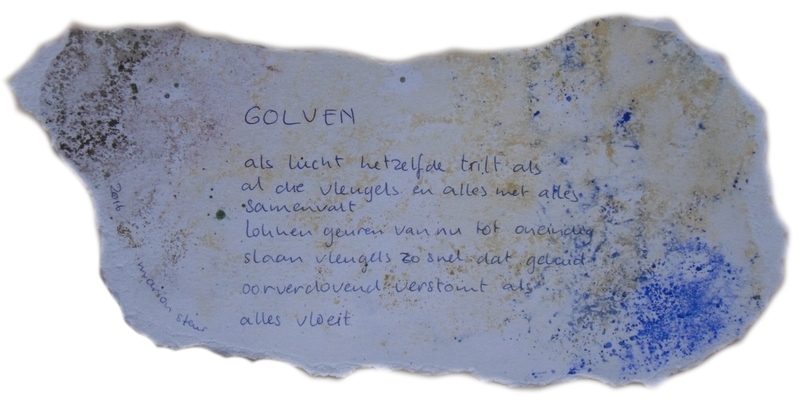 GOLVEN
als lucht hetzelfde trilt als
al die vleugels en alles met alles
samenvalt
lokken geuren van nu tot oneindig
slaan vleugels zo snel dat geluid
oorverdovend verstomt als
alles vloeit
2016 marion steur